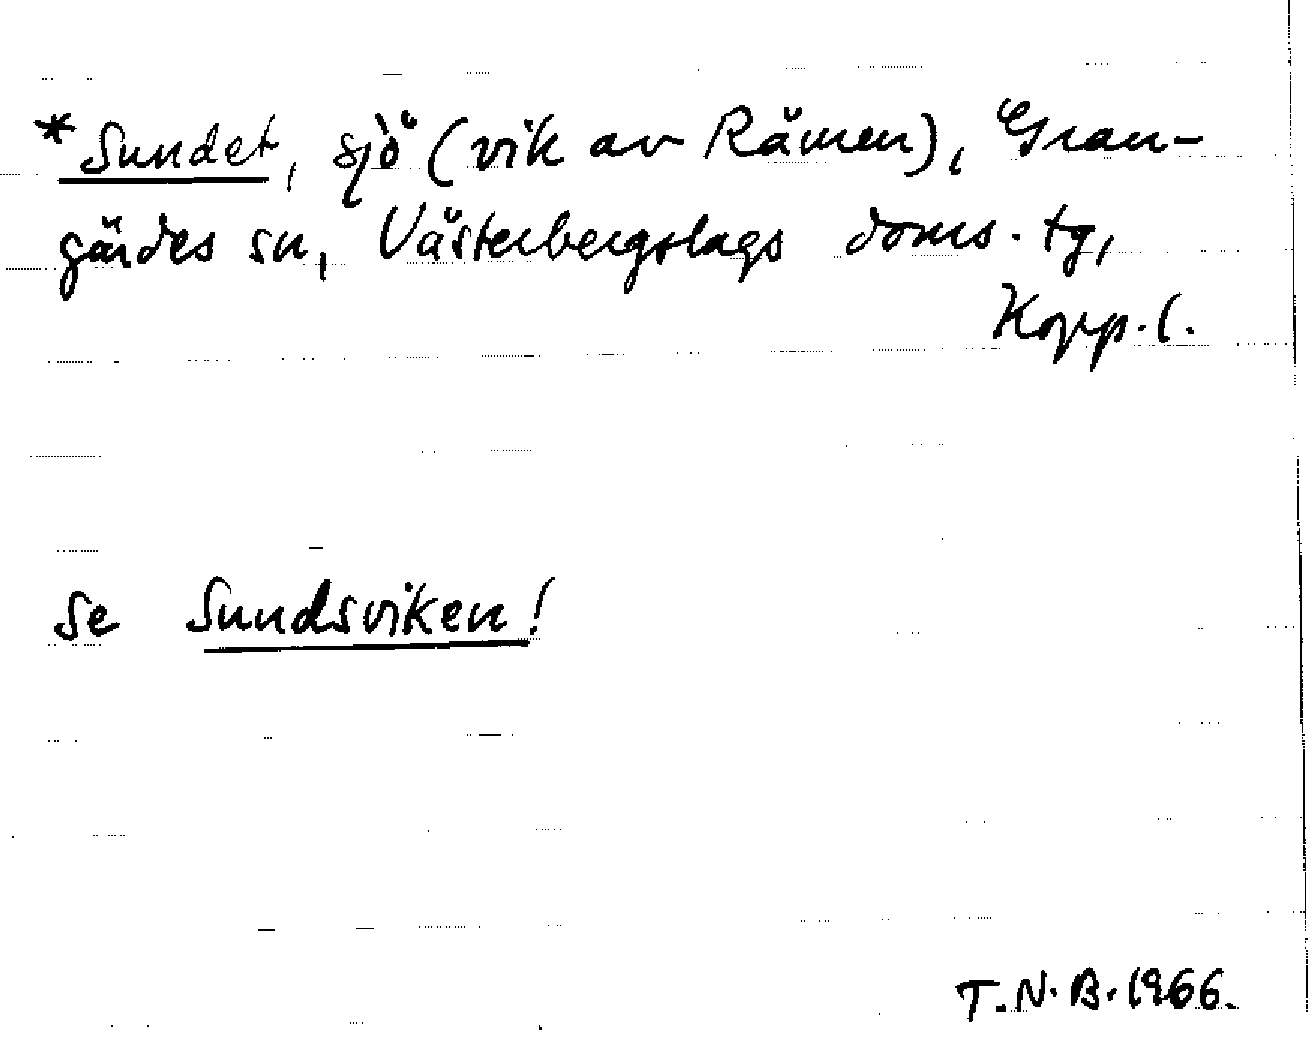 *Sundet, sjö (vik av Rämen), Gran-
gärdes sn, Västerbergslags doms. tg,
Kopp. l.
se Sundsviken!
T.N.B. 1966.